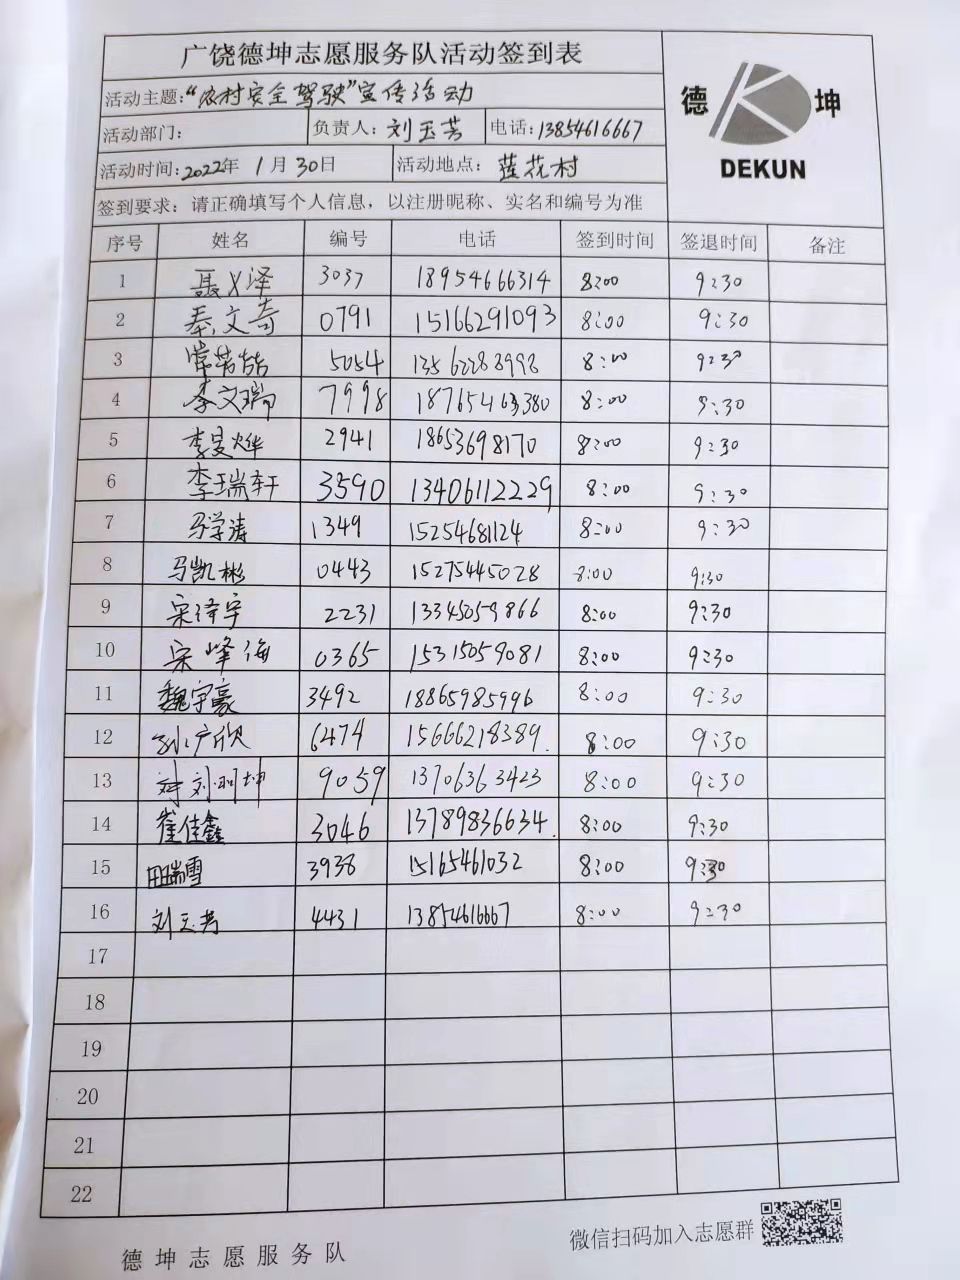 广饶德坤志愿服务队活动签到表
德 坤
DEKUN
活动主题:“农村安全驾驶”宣传活动
活动部门: 负责人: 刘玉芳 电话: 13854616667
活动时间: 2022年 1月30日 活动地点: 莲花村
签到要求: 请正确填写个人信息, 以注册昵称、实名和编号为准
序号 姓名 编号 电话 签到时间 签退时间 备注
1 聂义泽 3037 18954666314 8:00 9:30
2 秦文奇 0791 15166291093 8:00 9:30
3 5054 13562283998 8:00 9:30
4 李文瑞 7998 8:00 9:30
5 李旻烨 2941 18653698170 8:00 9:30
6 李瑞轩 3590 13406112229 8:00 9:30
7 马学涛 1349 15254681124 8:00 9:30
8 马凯彬 0443 15275445028 8:00 9:30
9 宋泽宇 2231 13345059866 8:00 9:30
10 宋峰海 0365 15315059081 8:00 9:30
11 魏宇豪 3492 18865985996 8:00 9:30
12 孙广欣 6474 15666218389. 8:00 9:30
13 刘明坤 9059 13706363423 8:00 9:30
14 崔佳鑫 3046 13789836634. 8:00 9:30
15 田瑞雪 3938 15165461032 8:00 9:30
16 刘玉芳 4431 13854616667 8:00 9:30
17
18
19
20
21
22
德坤志愿服务队
微信扫码加入志愿群